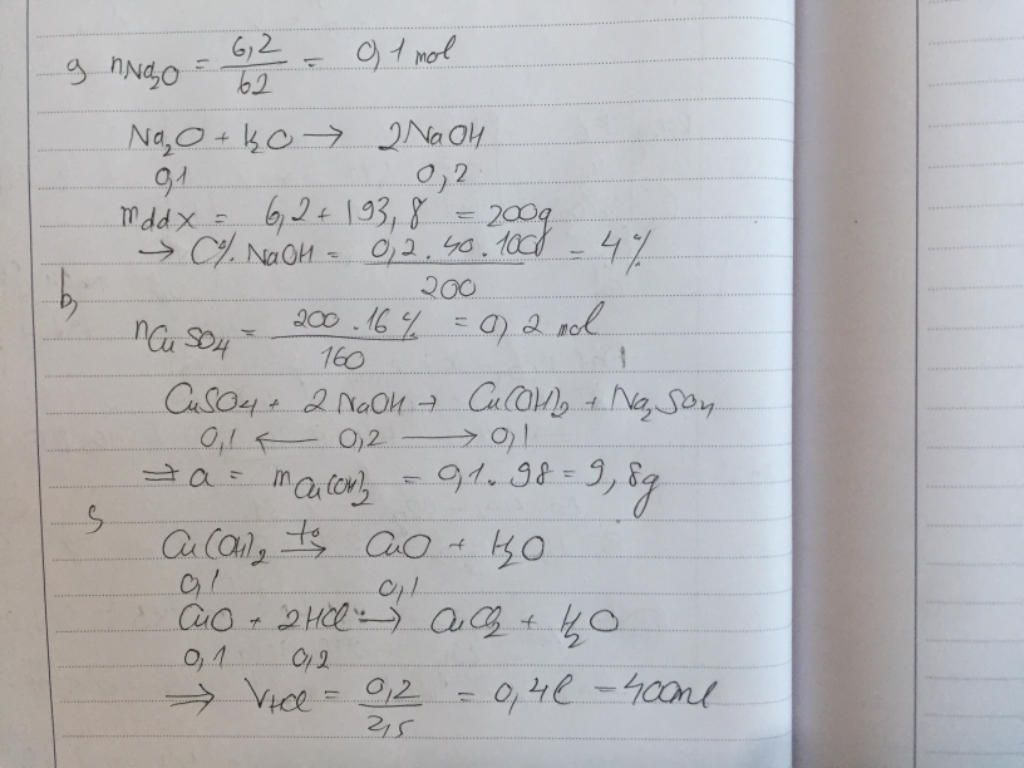 a, nNa₂O = 6,2/62 = 0,1 mol
Na₂O + H₂O → 2NaOH
0,1 0,2
mddX = 6,2 + 193,8 = 200g
→ C%NaOH = 0,2.40.100/200 = 4%
b,
nCuSO4 = 200.16%/160 = 0,2 mol
CuSO4 + 2NaOH → Cu(OH)₂ + Na₂SO4
0,1 ← 0,2 → 0,1
⇒ a = mCu(OH)₂ = 0,1.98 = 9,8g
c,
Cu(OH)₂ →to CuO + H₂O
0,1 0,1
CuO + 2HCl → CuCl₂ + H₂O
0,1 0,2
⇒ VHCl = 0,2/2,5 = 0,4l = 400ml